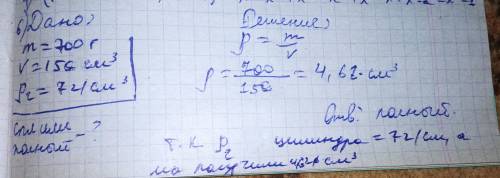 6) Дано:
m = 700 г
V = 150 см³
ρ₂ = 7 г/см³
спл или
полный - ?
Решение:
ρ = m/V
ρ = 700/150 = 4,6 г·см³
Отв: полный.
т.к ρ₂ цилиндра = 7 г/см, а
мы получили 4,6 г см³